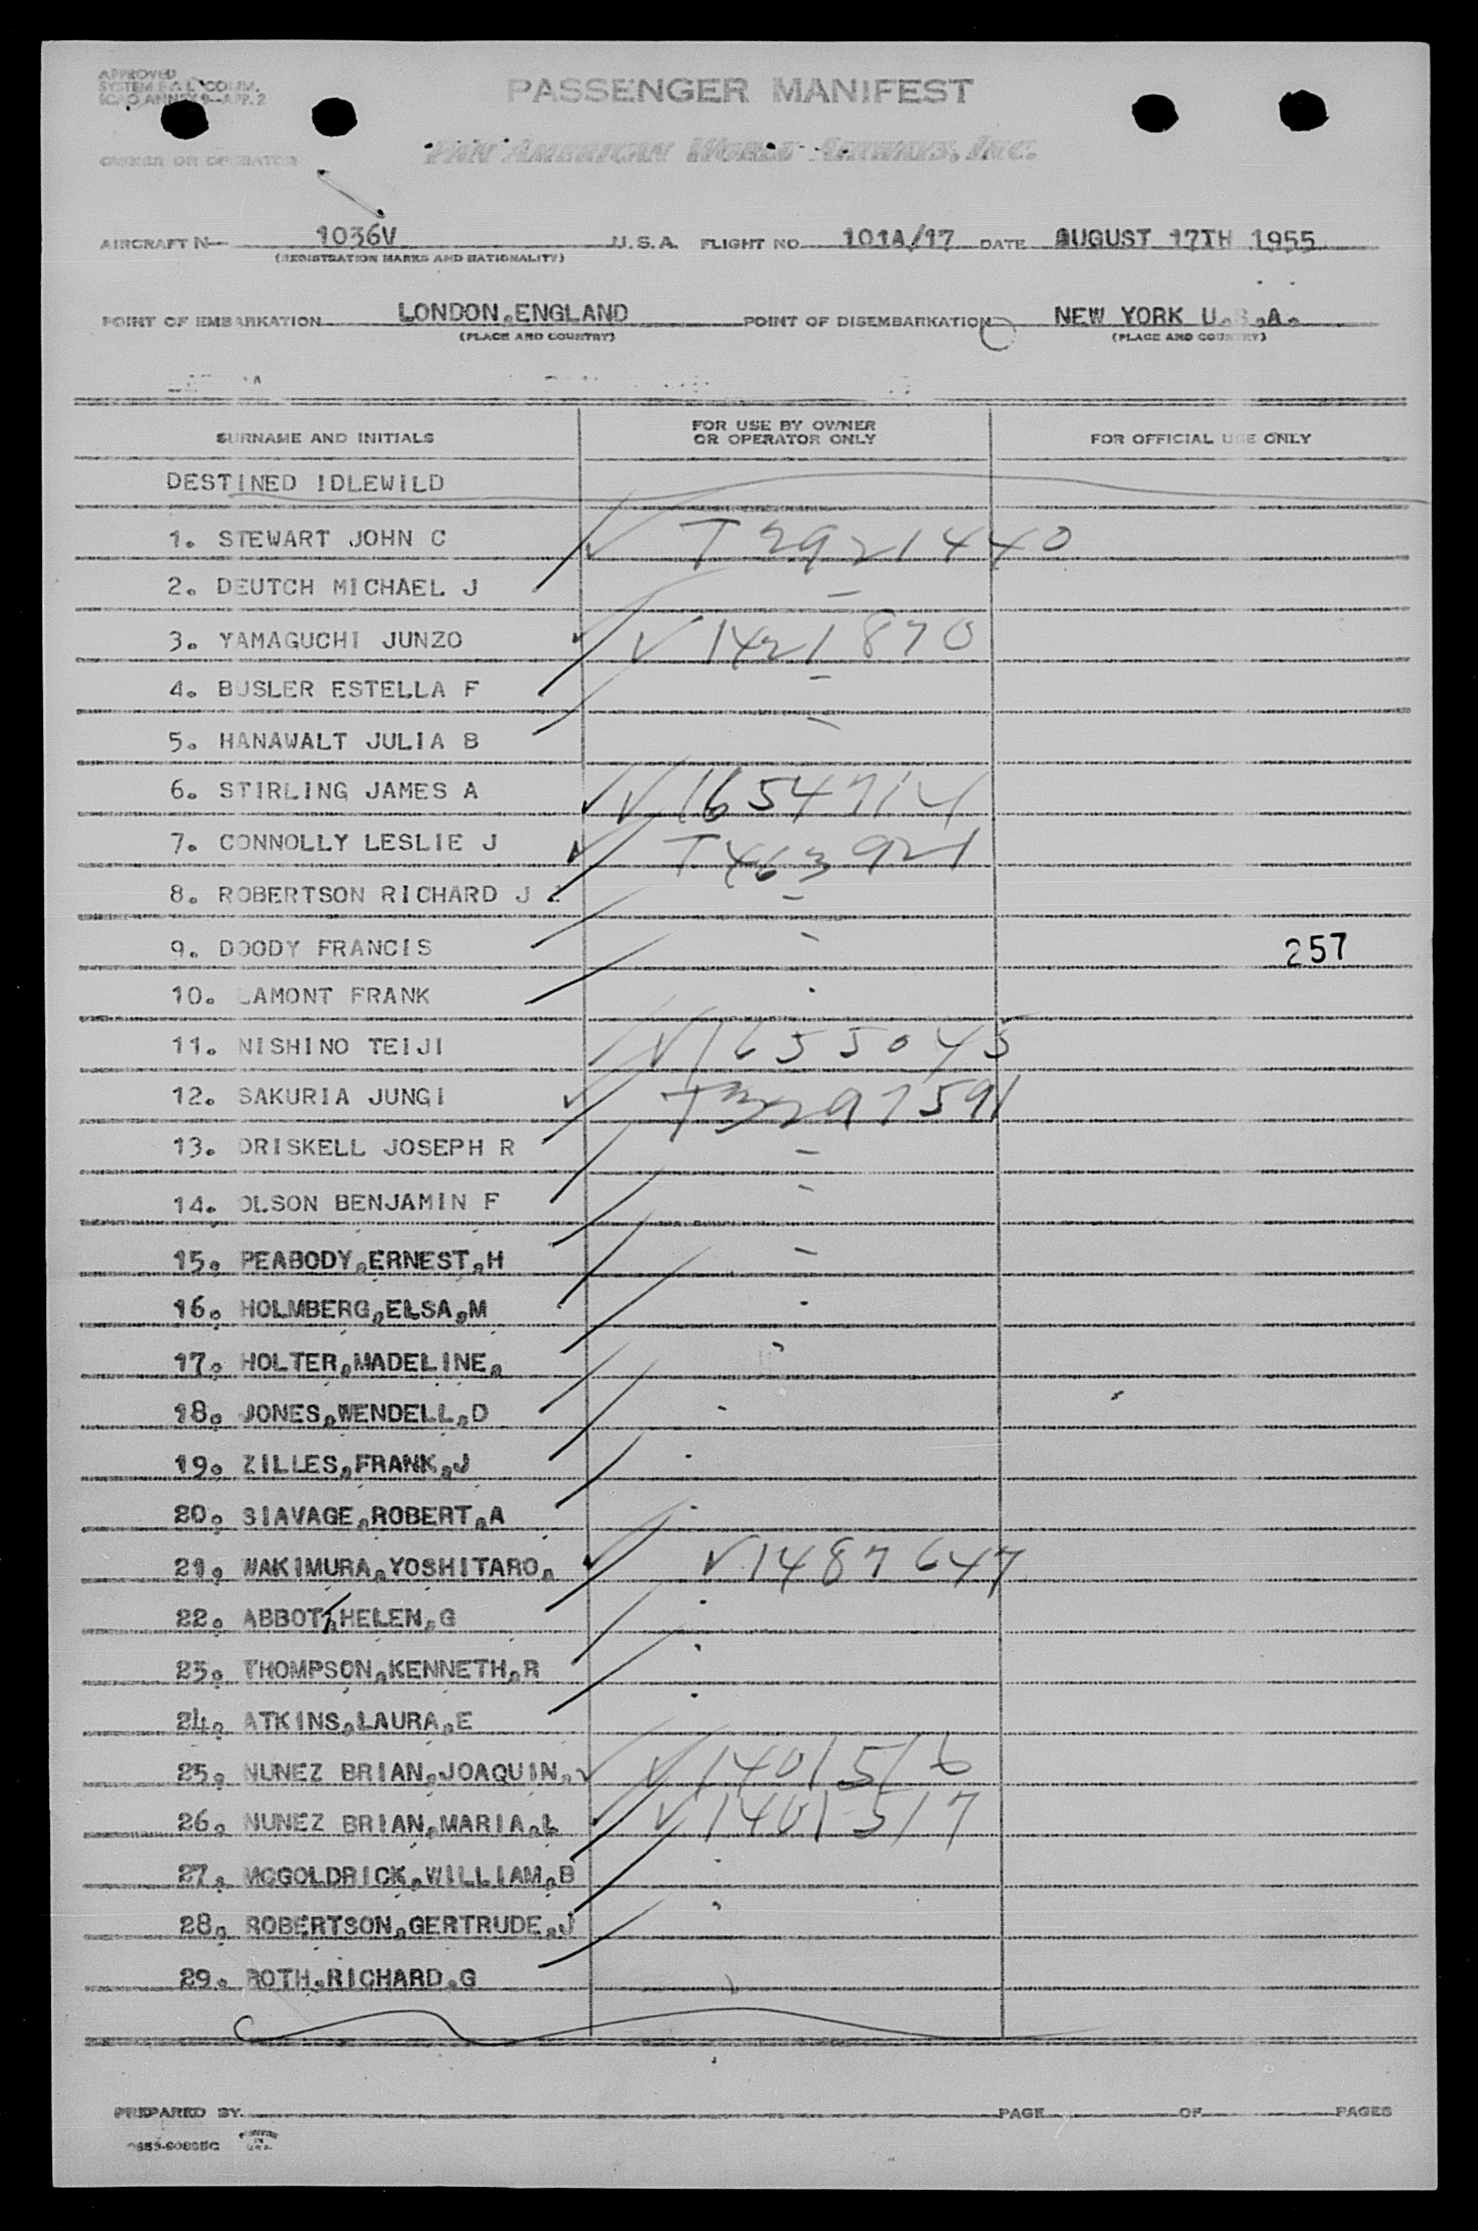 APPROVED
SYSTEM F & L COMM.
ICAO ANNEX 9—APP. 2
PASSENGER MANIFEST
OWNER OR OPERATOR
PAN AMERICAN WORLD AIRWAYS, INC.
AIRCRAFT N— 1036V U.S.A. FLIGHT NO. 101A/17 DATE AUGUST 17TH 1955
(REGISTRATION MARKS AND NATIONALITY)
POINT OF EMBARKATION LONDON,ENGLAND POINT OF DISEMBARKATION NEW YORK U.S.A.
(PLACE AND COUNTRY) (PLACE AND COUNTRY)
SURNAME AND INITIALS FOR USE BY OWNER OR OPERATOR ONLY FOR OFFICIAL USE ONLY
DESTINED IDLEWILD
1. STEWART JOHN C T2921440
2. DEUTCH MICHAEL J —
3. YAMAGUCHI JUNZO V1421870
4. BUSLER ESTELLA F —
5. HANAWALT JULIA B —
6. STIRLING JAMES A V1654714
7. CONNOLLY LESLIE J T463921
8. ROBERTSON RICHARD J —
9. DOODY FRANCIS — 257
10. LAMONT FRANK
11. NISHINO TEIJI V1655045
12. SAKURIA JUNGI T3297591
13. DRISKELL JOSEPH R —
14. OLSON BENJAMIN F —
15. PEABODY,ERNEST,H —
16. HOLMBERG,ELSA,M
17. HOLTER,MADELINE,
18. JONES,WENDELL,D
19. ZILLES,FRANK,J
20. SIAVAGE,ROBERT,A
21. WAKIMURA,YOSHITARO, V1487647
22. ABBOT,HELEN,G
23. THOMPSON,KENNETH,R
24. ATKINS,LAURA,E
25. NUNEZ BRIAN,JOAQUIN, V1401516
26. NUNEZ BRIAN,MARIA,L V1401517
27. MCGOLDRICK,WILLIAM,B
28. ROBERTSON,GERTRUDE,J
29. ROTH,RICHARD,G
PREPARED BY PAGE OF PAGES
PRINTED IN U.S.A.